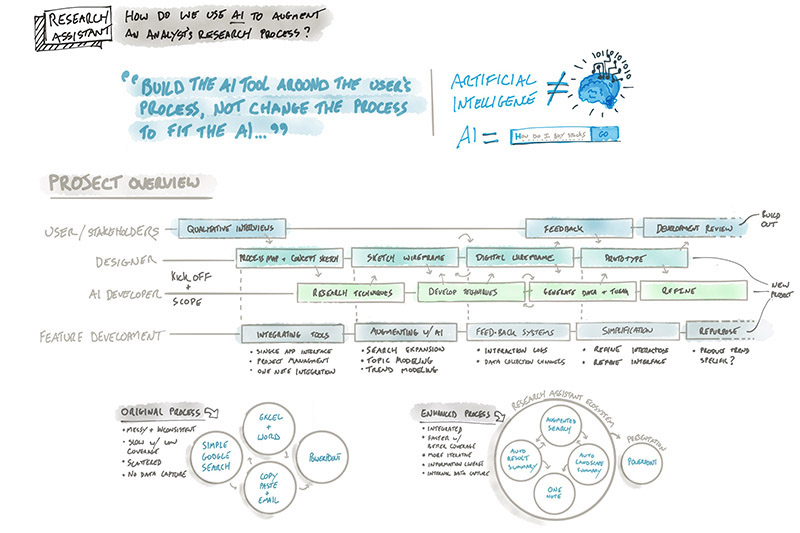 RESEARCH
ASSISTANT
HOW DO WE USE AI TO AUGMENT
AN ANALYST'S RESEARCH PROCESS?
"BUILD THE AI TOOL AROUND THE USER'S
PROCESS, NOT CHANGE THE PROCESS
TO FIT THE AI..."
ARTIFICIAL
INTELLIGENCE ≠
AI = HOW DO I BUY STOCKS GO
PROJECT OVERVIEW
USER/STAKEHOLDERS
QUALITATIVE INTERVIEWS
FEEDBACK
DEVELOPMENT REVIEW
BUILD
OUT
DESIGNER
PROCESS MAP + CONCEPT SKETCH
SKETCH WIREFRAME
DIGITAL WIREFRAME
PROTOTYPE
KICK OFF
+
SCOPE
AI DEVELOPER
RESEARCH TECHNIQUES
DEVELOP TECHNIQUES
GENERATE DATA +
REFINE
NEW
PROJECT
FEATURE DEVELOPMENT
INTEGRATING TOOLS
AUGMENTING W/ AI
FEED-BACK SYSTEMS
SIMPLIFICATION
REPURPOSE
• SINGLE APP INTERFACE
• PROJECT MANAGMENT
• ONE NOTE INTEGRATION
• SEARCH EXPANSION
• TOPIC MODELING
• TREND MODELING
• INTERACTION LOGS
• DATA COLLECTION CHANNELS
• REFINE
• REFINE INTERFACE
• PRODUCE TREND
SPECIAL?
ORIGINAL PROCESS
• MESSY + INCONSISTENT
• SLOW W/ LOW
COVERAGE
• SCATTERED
• NO DATA CAPTURE
SIMPLE
GOOGLE
SEARCH
EXCEL
+
WORD
COPY
PASTE +
EMAIL
POWERPOINT
ENHANCED PROCESS
• INTEGRATED
• FASTER W/
BETTER COVERAGE
• MORE ITERATIVE
• INFORMATION
• INTERNAL DATA CAPTURE
RESEARCH ASSISTANT ECOSYSTEM
AUGMENTED
SEARCH
AUTO
RESULT
SUMMARY
AUTO
LANDSCAPE
SUMMARY
ONE
NOTE
PRESENTATION
POWERPOINT